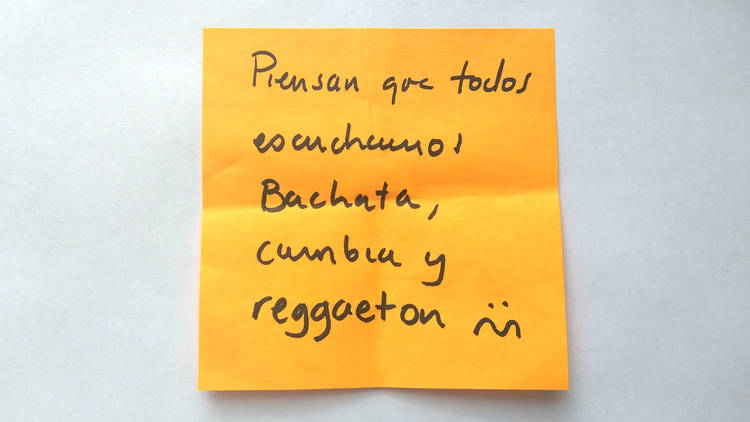 Piensan que todos
escuchamos
Bachata,
cumbia y
reggaeton